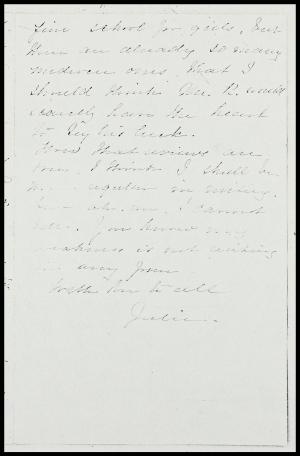 fine school for girls, but
there are already so many
mediocre ones that I
should think Mr. R. would
scarcely have the heart
to try his luck.
Now that reviews are
over, I think I shall be
regular in writing,
I cannot
tell. You know my
weakness is not writing
away from
With love to all
Julia.